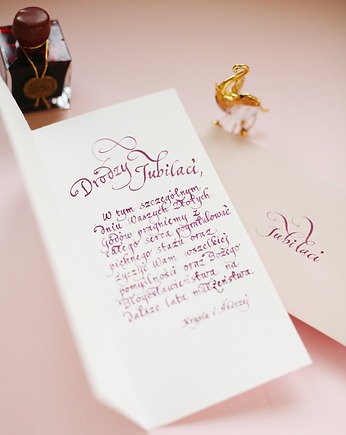 Drodzy Jubilaci,
W tym szczególnym
Dniu Waszych Złotych
Godów pragniemy z
całego serca pogratulować
pięknego stażu oraz
życzyć Wam wszelkiej
pomyślności oraz Bożego
Błogosławieństwa na
dalsze lata małżeństwa.
Krysia i Andrzej
Jubilaci